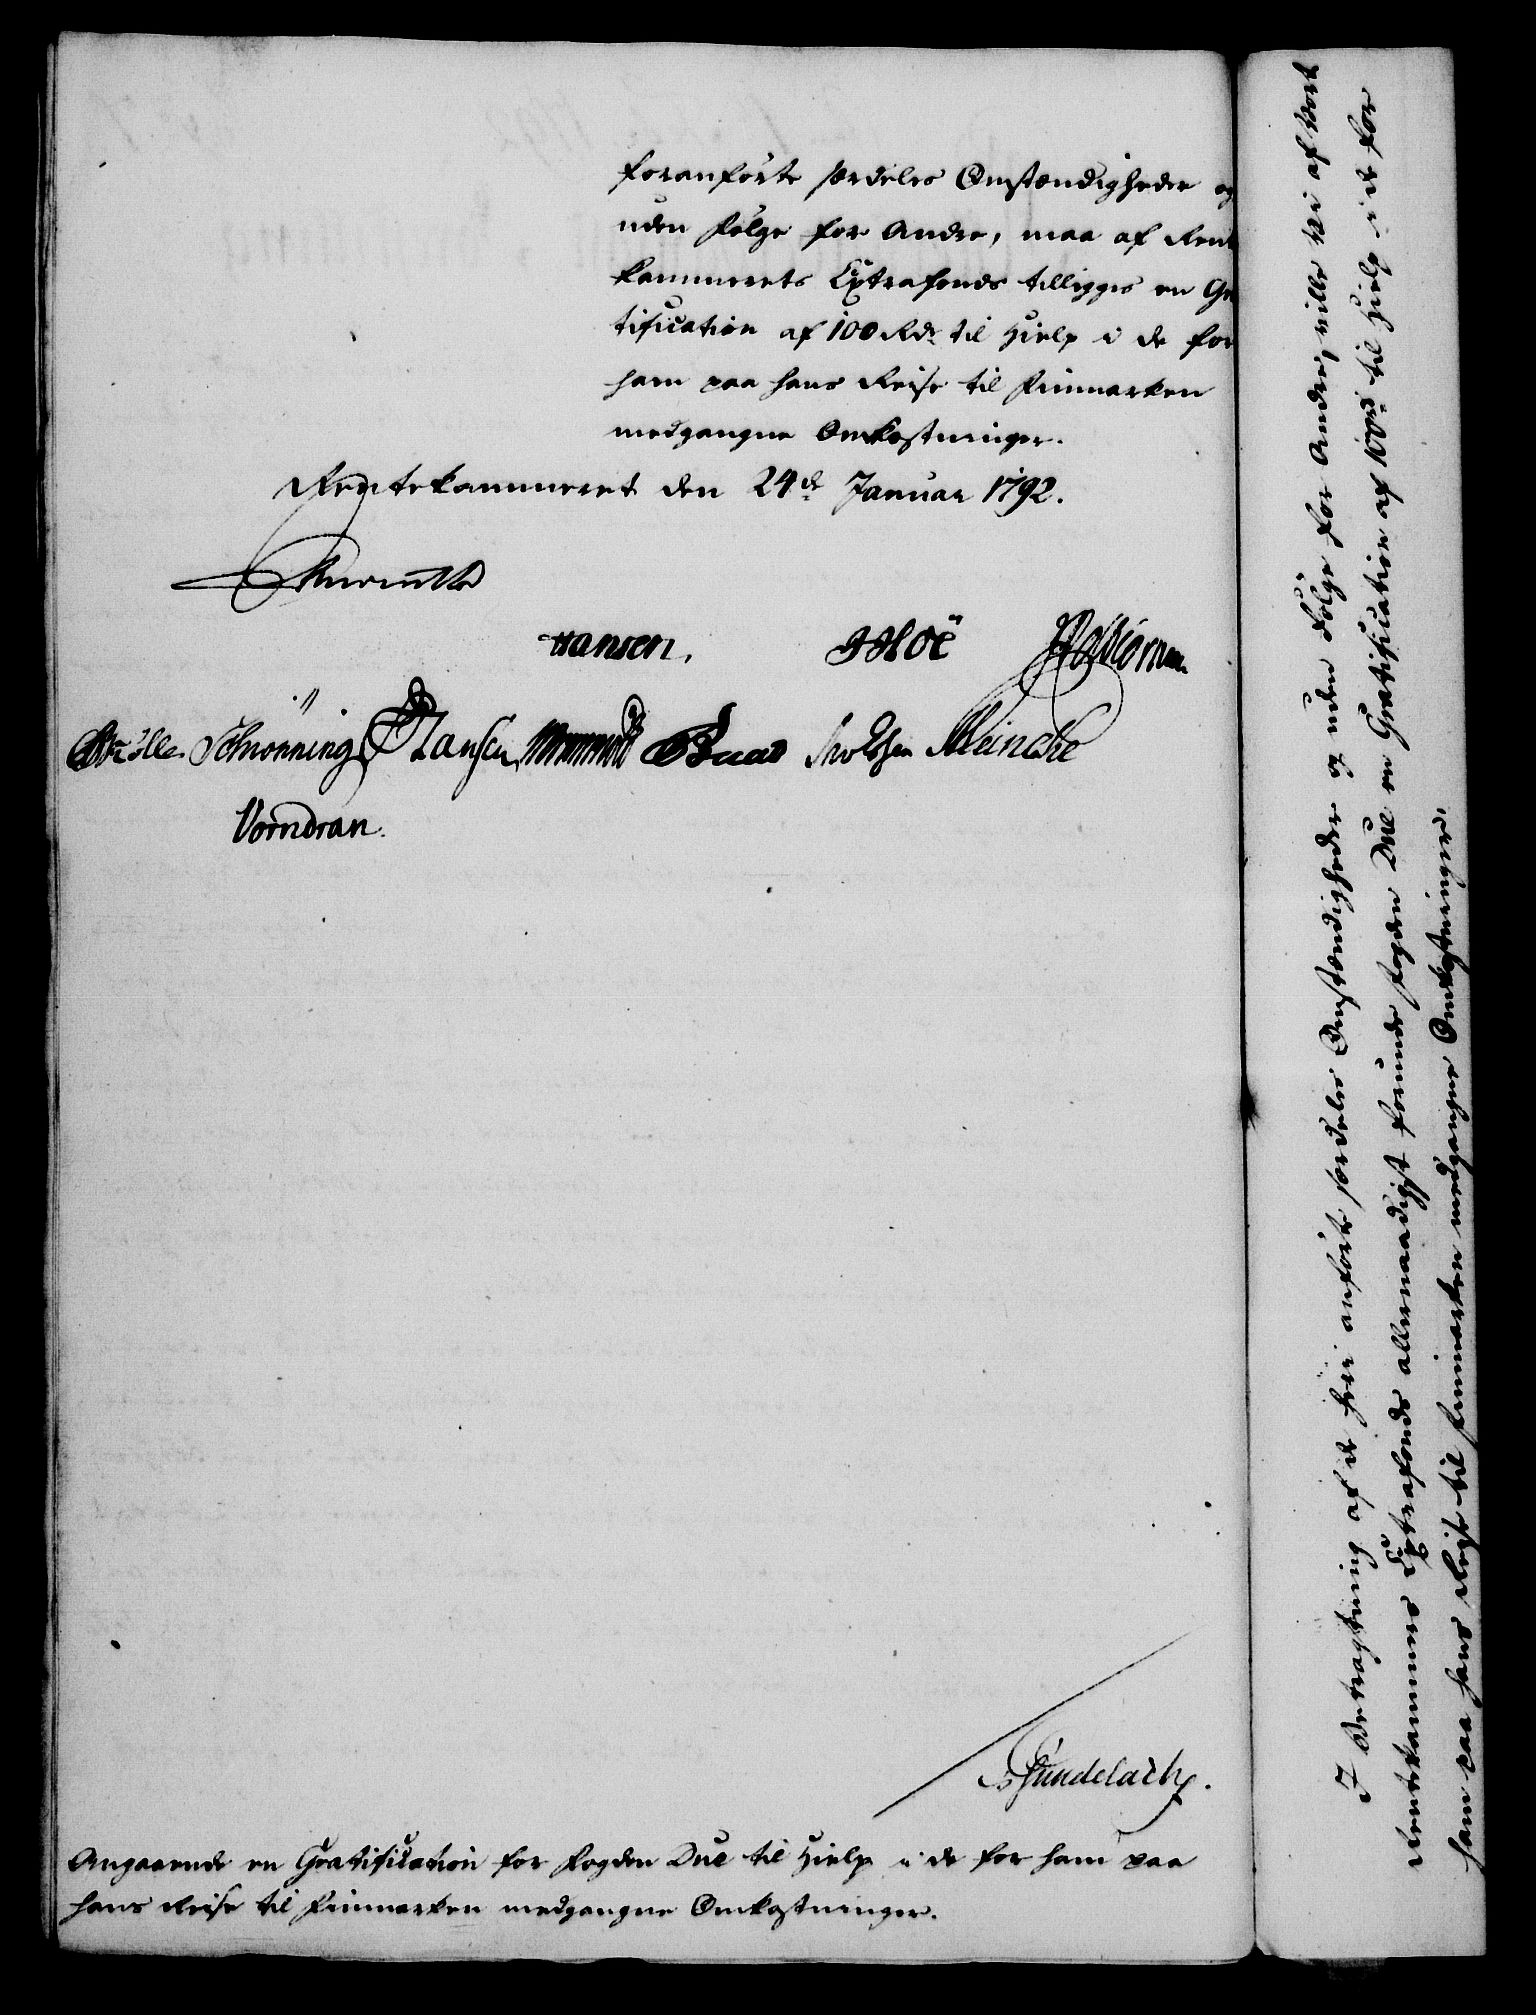 foranførte særdeles Omstændigheder og
uden Følge for Andre, maa af Rente
kammerets Extrafonds tillægges en Gra
tification af 100 Rdr til Hielp i de for
ham paa hans Reise til Finmarken
medgangne Omkostninger.
Rentekammeret den 24de Januar 1792.
Hansen.
Schiønning Hansen Meincke
Vorndran.
Gundelach.
Angaaende en Gratification for Fogden Due til Hielp i de for ham paa
hans Reise til Finmarken medgangne Omkostninger.
I Betragtning af de heri anførte særdeles Omstændigheder og uden Følge for Andre, ville Vi af Vort
Rentekammers Extrafonds allernaadigst forunde Fogden Due en Gratification af 100 Rdr til Hielp i de for
ham paa hans Reise til Finmarken medgangne Omkostninger.